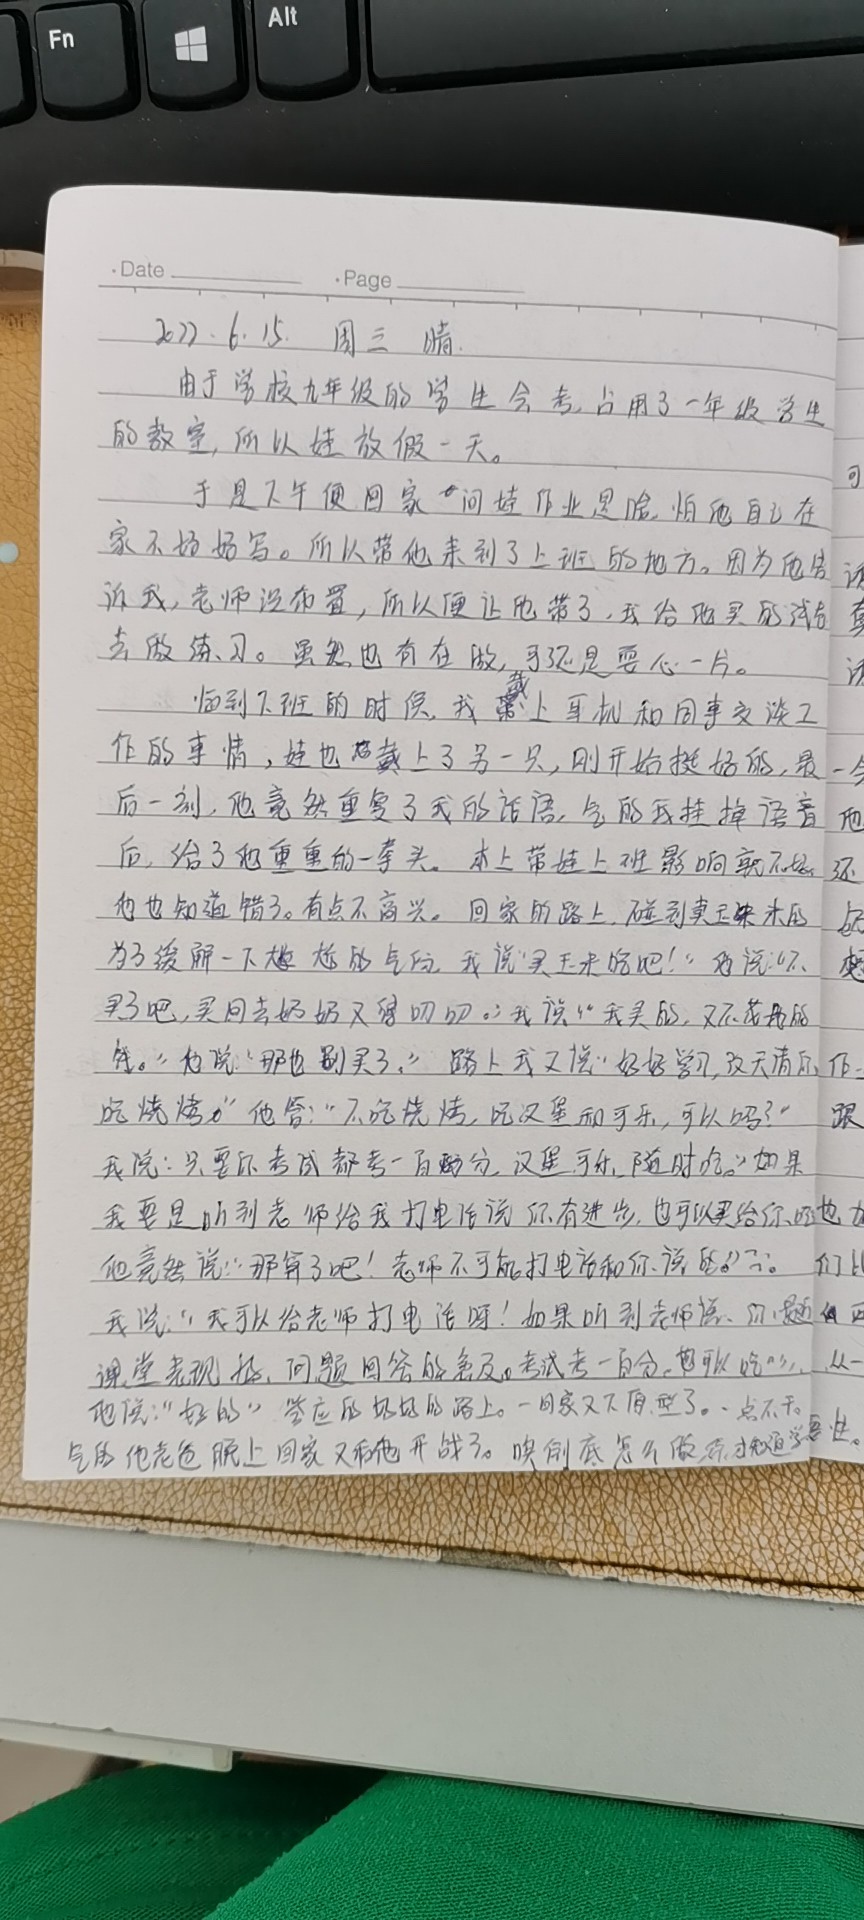 Fn
Alt
Date
Page
2022.6.15. 周三 晴.
由于学校九年级的学生会考,占用了一年级学生
的教室,所以娃放假一天。
于是下午便回家 问娃作业思啥,怕他自己在
家不好好写。所以带他来到了上班的地方。因为他告
诉我,老师没布置,所以便让他带了,我给他买的试卷
去做练习。虽然也有在做,可还是耍心一片。
临到下班的时候,我戴上耳机和同事交谈工
作的事情,娃也戴上了另一只,刚开始挺好的,最
后一刻,他竟然重复了我的话语,气的我挂掉语音
后,给了他重重的一拳头。本上带娃上班影响就不好,
他也知道错了。有点不高兴。回家的路上,碰到卖玉米的
为了缓解一下尴尬的气氛,我说“买玉米吃吧!”他说:“不
买了吧,买回去奶奶又得叨叨。”我说“我买的,又不花她的
钱。”他说“那也别买了。”路上我又说“好好学习,改天请你
吃烧烤。”他答:“不吃烧烤,吃汉堡和可乐,可以吗?”
我说:只要你考试都考一百分,汉堡可乐,随时吃。”如果
我要是听到老师给我打电话说你有进步,也可以买给你吃
他竟然说:“那算了吧!老师不可能打电话和你说的。”
我说:“我可以给老师打电话呀!如果听到老师说、你
课堂表现好、问题回答的多及。考试考一百分,也可以吃”
他说:“好的”答应的好好的路上。一回家又不原型了。一点不干。
气的他老爸晚上回家又和他开战了。唉倒底怎么做才知道学
可
一个
他
还
作
跟
也
们
从一